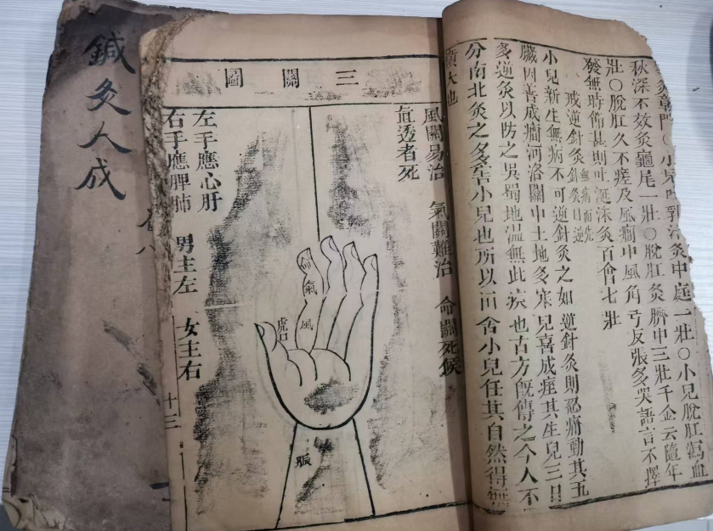 灸章門○小兒吐乳汁灸中庭一壯○小兒脫肛瀉血
秋深不效灸龜尾一壯○脫肛灸臍中三壯千金云隨年
壯○脫肛久不瘥及風癎中風角弓反張多哭語言不擇
發無時節甚則吐涎沫灸百會七壯
戒逆針灸 無病而先針灸曰逆
小兒新生無病不可逆針灸之如逆針灸則忍痛動其五
臟因善成癎河洛關中土地多寒兒喜成痙其生兒三日
多逆灸以防之吳蜀地溫無此疾也古方既傳之今人不
分南北灸之多害小兒也所以田舍小兒任其自然得無
橫夭也
三關圖
風關易治 氣關難治 命關死候
直透者死
命
氣
風
虎口
脈
左手應心肝
右手應脾肺 男主左 女主右
十三
鍼灸大成